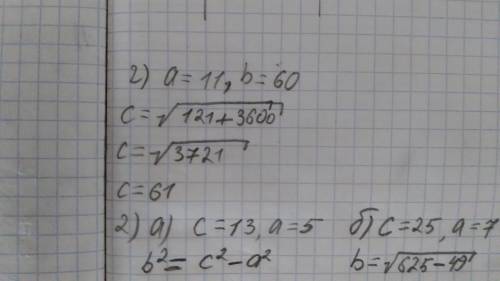 г) a=11, b=60
c=√121+3600
c=√3721
c=61
2) а) c=13, a=5 б) c=25, a=7
b²= c²-a² b=√625-49